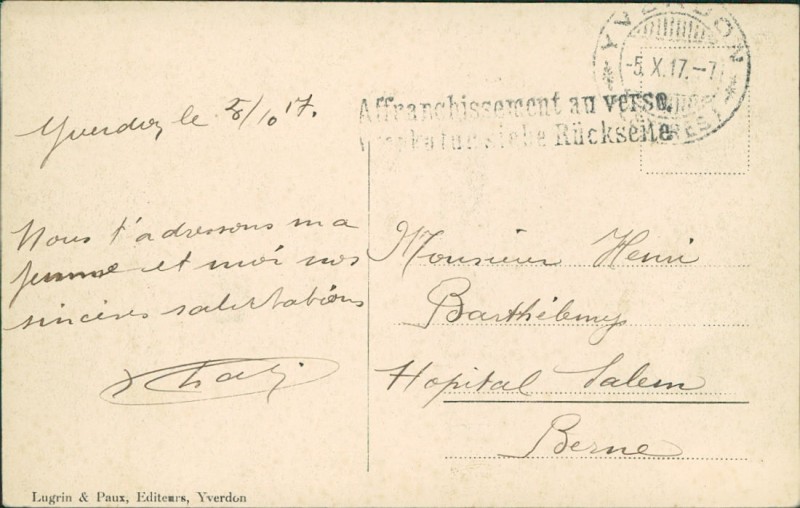 YVERDON
-5.X.17.-7
Affranchissement au verso.
siehe Rückseite
Yverdon le 5/10 17.
Nous t'adressons ma
femme et moi nos
sincères salutations
Monsieur Henri
Barthélemy
Hopital Salem
Berne
Lugrin & Paux, Editeurs, Yverdon